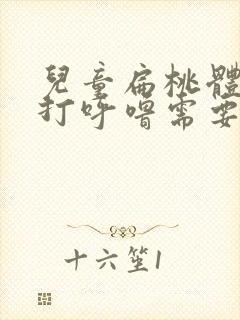 兒童扁桃體
打呼嚕需要
十六笙1